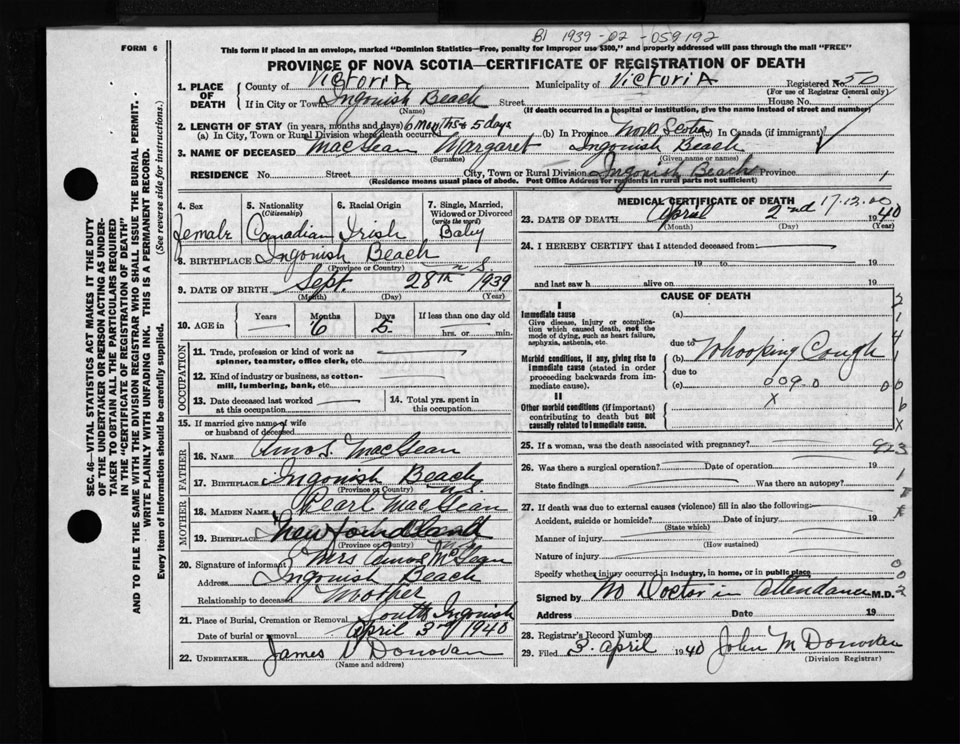 BI 1939-02-059192
FORM 6
This form if placed in an envelope, marked "Dominion Statistics—Free, penalty for improper use $300," and properly addressed will pass through the mail "FREE"
PROVINCE OF NOVA SCOTIA—CERTIFICATE OF REGISTRATION OF DEATH
SEC. 46—VITAL STATISTICS ACT MAKES IT THE DUTY
OF THE UNDERTAKER OR PERSON ACTING AS UNDER-
TAKER TO OBTAIN ALL THE PARTICULARS REQUIRED
IN THE "CERTIFICATE OF REGISTRATION OF DEATH"
AND TO FILE THE SAME WITH THE DIVISION REGISTRAR WHO SHALL ISSUE THE BURIAL PERMIT.
WRITE PLAINLY WITH UNFADING INK. THIS IS A PERMANENT RECORD.
Every item of Information should be carefully supplied. (See reverse side for instructions.)
1. PLACE OF DEATH County of Victoria Municipality of Victoria Registered No. 50
(For use of Registrar General only)
If in City or Town Ingonish Beach Street House No.
(Name) (If death occurred in a hospital or institution, give the name instead of street and number)
2. LENGTH OF STAY (in years, months and days)
(a) In City, Town or Rural Division where death occurred 6 months 5 days (b) In Province Nova Scotia (c) In Canada (if immigrant)
3. NAME OF DECEASED MacLean Margaret Ingonish Beach
(Surname) (Given name or names)
RESIDENCE No. Street City, Town or Rural Division Ingonish Beach Province
(Residence means usual place of abode. Post Office Address for residents in rural parts not sufficient) 1
4. Sex Female
5. Nationality (Citizenship) Canadian
6. Racial Origin Irish
7. Single, Married, Widowed or Divorced (write the word) Baby
8. BIRTHPLACE Ingonish Beach N.S.
(Province or Country)
9. DATE OF BIRTH Sept 28th 1939
(Month) (Day) (Year)
10. AGE in Years Months 6 Days 5 If less than one day old
hrs. or min.
OCCUPATION
11. Trade, profession or kind of work as
spinner, teamster, office clerk, etc.
12. Kind of industry or business, as cotton-
mill, lumbering, bank, etc.
13. Date deceased last worked at this occupation.
14. Total yrs. spent in this occupation.
15. If married give name of wife
or husband of deceased
FATHER
16. NAME Amos MacLean
17. BIRTHPLACE Ingonish Beach N.S.
(Province or Country)
MOTHER
18. MAIDEN NAME Pearl MacLean
19. BIRTHPLACE Newfoundland
(Province or Country)
20. Signature of informant Mrs Amos McLean
Address Ingonish Beach
Relationship to deceased Mother
21. Place of Burial, Cremation or Removal South Ingonish
Date of burial or removal April 3rd 1940
22. UNDERTAKER James Donovan
(Name and address)
MEDICAL CERTIFICATE OF DEATH
23. DATE OF DEATH April 2nd 1940
(Month) (Day) (Year)
24. I HEREBY CERTIFY that I attended deceased from:
19 to 19
and last saw h alive on 19
CAUSE OF DEATH
I
Immediate cause
Give disease, injury or complica-
tion which caused death, not the
mode of dying, such as heart failure,
asphyxia, asthenia, etc.
(a)
due to
Morbid conditions, if any, giving rise to
immediate cause (stated in order
proceeding backwards from im-
mediate cause).
(b) Whooping Cough
due to
(c) 009.0
II
Other morbid conditions (if important)
contributing to death but not
causally related to immediate cause.
X
25. If a woman, was the death associated with pregnancy? 923
26. Was there a surgical operation? Date of operation 19
State findings Was there an autopsy?
27. If death was due to external causes (violence) fill in also the following:
Accident, suicide or homicide? Date of injury 19
(State which)
Manner of injury
(How sustained)
Nature of injury
Specify whether injury occurred in industry, in home, or in public place
Signed by No Doctor in attendance M.D.
Address Date 19
28. Registrar's Record Number
29. Filed 3. April 1940 John M Donovan
(Division Registrar)